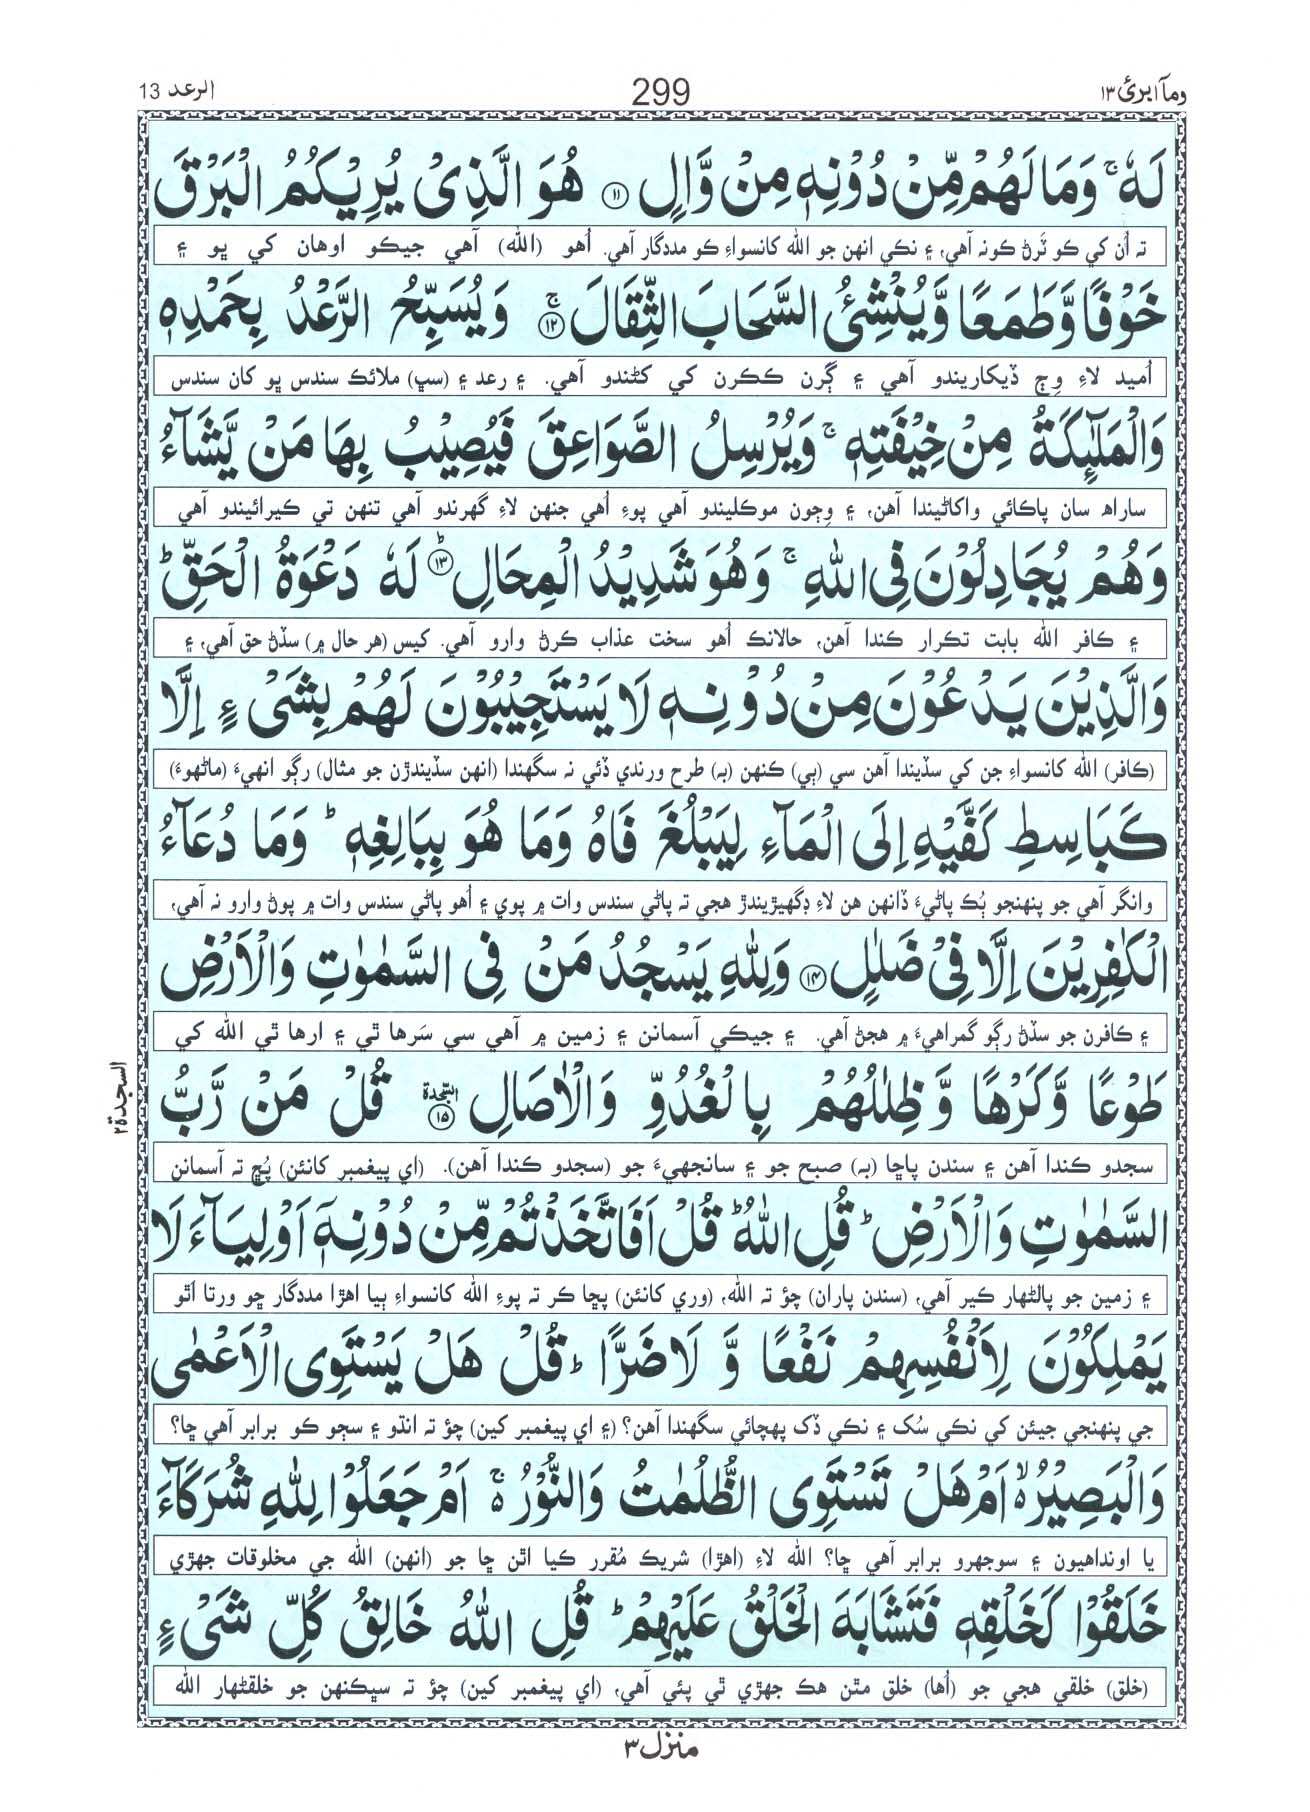 ومآ ابرئ ١٣
299
الرعد 13
لَهٗ ۚ وَمَا لَهُمْ مِّنْ دُوْنِهٖ مِنْ وَّالٍ ﴿١١﴾ هُوَ الَّذِىْ يُرِيْكُمُ الْبَرْقَ
ته اُن کي ڪو ٽَرڻ ڪونه آهي، ۽ نڪي انهن جو الله کانسواءِ ڪو مددگار آهي. اُهو (الله) آهي جيڪو اوهان کي ڀو ۽
خَوْفًا وَّطَمَعًا وَّيُنْشِئُ السَّحَابَ الثِّقَالَ ﴿١٢﴾ۚ وَيُسَبِّحُ الرَّعْدُ بِحَمْدِهٖ
اُميد لاءِ وڄ ڏيکاريندو آهي ۽ ڳَرن ڪڪرن کي کڻندو آهي. ۽ رعد ۽ (سڀ) ملائڪ سندس ڀو کان سندس
وَالْمَلٰٓئِكَةُ مِنْ خِيْفَتِهٖ ۚ وَيُرْسِلُ الصَّوَاعِقَ فَيُصِيْبُ بِهَا مَنْ يَّشَآءُ
ساراھ سان پاڪائي واکاڻيندا آهن، ۽ وِڄون موڪليندو آهي پوءِ اُهي جنهن لاءِ گهرندو آهي تنهن تي ڪيرائيندو آهي
وَهُمْ يُجَادِلُوْنَ فِى اللّٰهِ ۚ وَهُوَ شَدِيْدُ الْمِحَالِ ﴿١٣﴾ؕ لَهٗ دَعْوَةُ الْحَقِّ ؕ
۽ ڪافر الله بابت تڪرار ڪندا آهن، حالانڪ اُهو سخت عذاب ڪرڻ وارو آهي. کيس (هر حال ۾) سڏڻ حق آهي، ۽
وَالَّذِيْنَ يَدْعُوْنَ مِنْ دُوْنِهٖ لَا يَسْتَجِيْبُوْنَ لَهُمْ بِشَىْءٍ اِلَّا
(ڪافر) الله کانسواءِ جن کي سڏيندا آهن سي (ٻي) ڪنهن (به) طرح ورندي ڏئي نه سگهندا (انهن سڏيندڙن جو مثال) رڳو انهيءَ (ماڻهوءَ)
كَبَاسِطِ كَفَّيْهِ اِلَى الْمَآءِ لِيَبْلُغَ فَاهُ وَمَا هُوَ بِبَالِغِهٖ ؕ وَمَا دُعَآءُ
وانگر آهي جو پنهنجو ٻُڪ پاڻيءَ ڏانهن هن لاءِ ڊگهيڙيندڙ هجي ته پاڻي سندس وات ۾ پوي ۽ اُهو پاڻي سندس وات ۾ پوڻ وارو نه آهي،
الْكٰفِرِيْنَ اِلَّا فِىْ ضَلٰلٍ ﴿١٤﴾ وَلِلّٰهِ يَسْجُدُ مَنْ فِى السَّمٰوٰتِ وَالْاَرْضِ
۽ ڪافرن جو سڏڻ رڳو گمراهيءَ ۾ هجڻ آهي. ۽ جيڪي آسمانن ۽ زمين ۾ آهي سي سَرها ٿي ۽ ارها ٿي الله کي
السجدة ٢
طَوْعًا وَّكَرْهًا وَّظِلٰلُهُمْ بِالْغُدُوِّ وَالْاٰصَالِ ﴿١٥﴾ السّجدة قُلْ مَنْ رَّبُّ
سجدو ڪندا آهن ۽ سندن پاڇا (به) صبح جو ۽ سانجهيءَ جو (سجدو ڪندا آهن). (اي پيغمبر کانئن) پُڇ ته آسمانن
السَّمٰوٰتِ وَالْاَرْضِ ؕ قُلِ اللّٰهُ ؕ قُلْ اَفَاتَّخَذْتُمْ مِّنْ دُوْنِهٖٓ اَوْلِيَآءَ لَا
۽ زمين جو پالڻهار ڪير آهي، (سندن پاران) چؤ ته الله، (وري کانئن) پڇا ڪر ته پوءِ الله کانسواءِ ٻيا اهڙا مددگار ڇو ورتا اَٿو
يَمْلِكُوْنَ لِاَنْفُسِهِمْ نَفْعًا وَّ لَا ضَرًّا ؕ قُلْ هَلْ يَسْتَوِى الْاَعْمٰى
جي پنهنجي جيئن کي نڪي سُک ۽ نڪي ڏک پهچائي سگهندا آهن؟ (۽ اي پيغمبر کين) چؤ ته انڌو ۽ سڄو ڪو برابر آهي ڇا؟
وَالْبَصِيْرُ ۙ اَمْ هَلْ تَسْتَوِى الظُّلُمٰتُ وَالنُّوْرُ ۚ اَمْ جَعَلُوْا لِلّٰهِ شُرَكَآءَ
يا اونداهيون ۽ سوجهرو برابر آهي ڇا؟ الله لاءِ (اهڙا) شريڪ مُقرر ڪيا اٿن ڇا جو (انهن) الله جي مخلوقات جهڙي
خَلَقُوْا كَخَلْقِهٖ فَتَشَابَهَ الْخَلْقُ عَلَيْهِمْ ؕ قُلِ اللّٰهُ خَالِقُ كُلِّ شَىْءٍ
(خلق) خلقي هجي جو (اُها) خلق مٿن هڪ جهڙي ٿي پئي آهي، (اي پيغمبر کين) چؤ ته سڀڪنهن جو خلقڻهار الله
منزل ٣